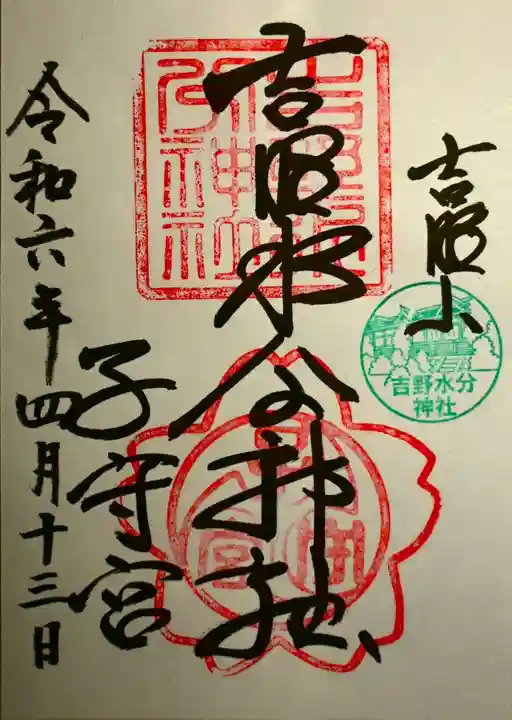 吉野山
吉野水分神社
子守宮
令和六年四月十三日
吉野水分
神社